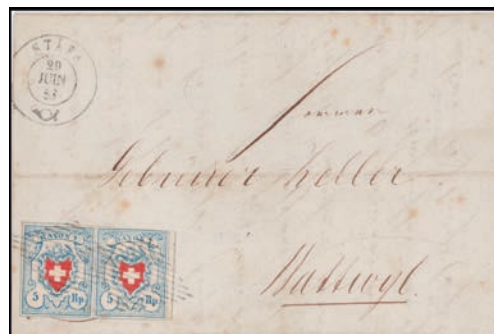 STÄFA
29
JUIN
53
Gebrüder Zeller
Wattwyl.
RAYON I
5 Rp.
RAYON I
5 Rp.